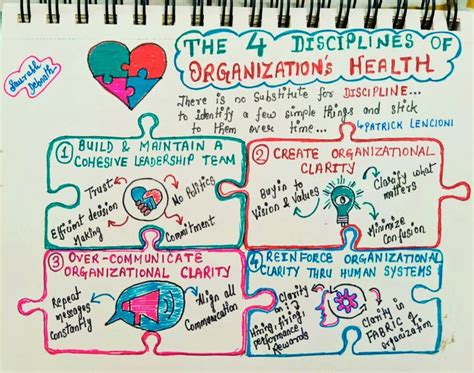 THE 4 DISCIPLINES OF
ORGANIZATION'S HEALTH
Saurabh
Debnath
There is no Substitute for DISCIPLINE...
to identify a few simple things and stick
to them over time...
PATRICK LENCIONI
1 BUILD & MAINTAIN A
COHESIVE LEADERSHIP TEAM
Trust
No Politics
Efficient decision
Making
Commitment
2 CREATE ORGANIZATIONAL
CLARITY
Buy in to
Vision & Values
Clarify what
matters
Minimize
Confusion
3 OVER-COMMUNICATE
ORGANIZATIONAL CLARITY
Repeat
messages
constantly
Align all
Communication
4 REINFORCE ORGANIZATIONAL
CLARITY THRU HUMAN SYSTEMS
Clarity in
Hiring, firing,
performance,
Rewards
Clarity in
FABRIC of
organization